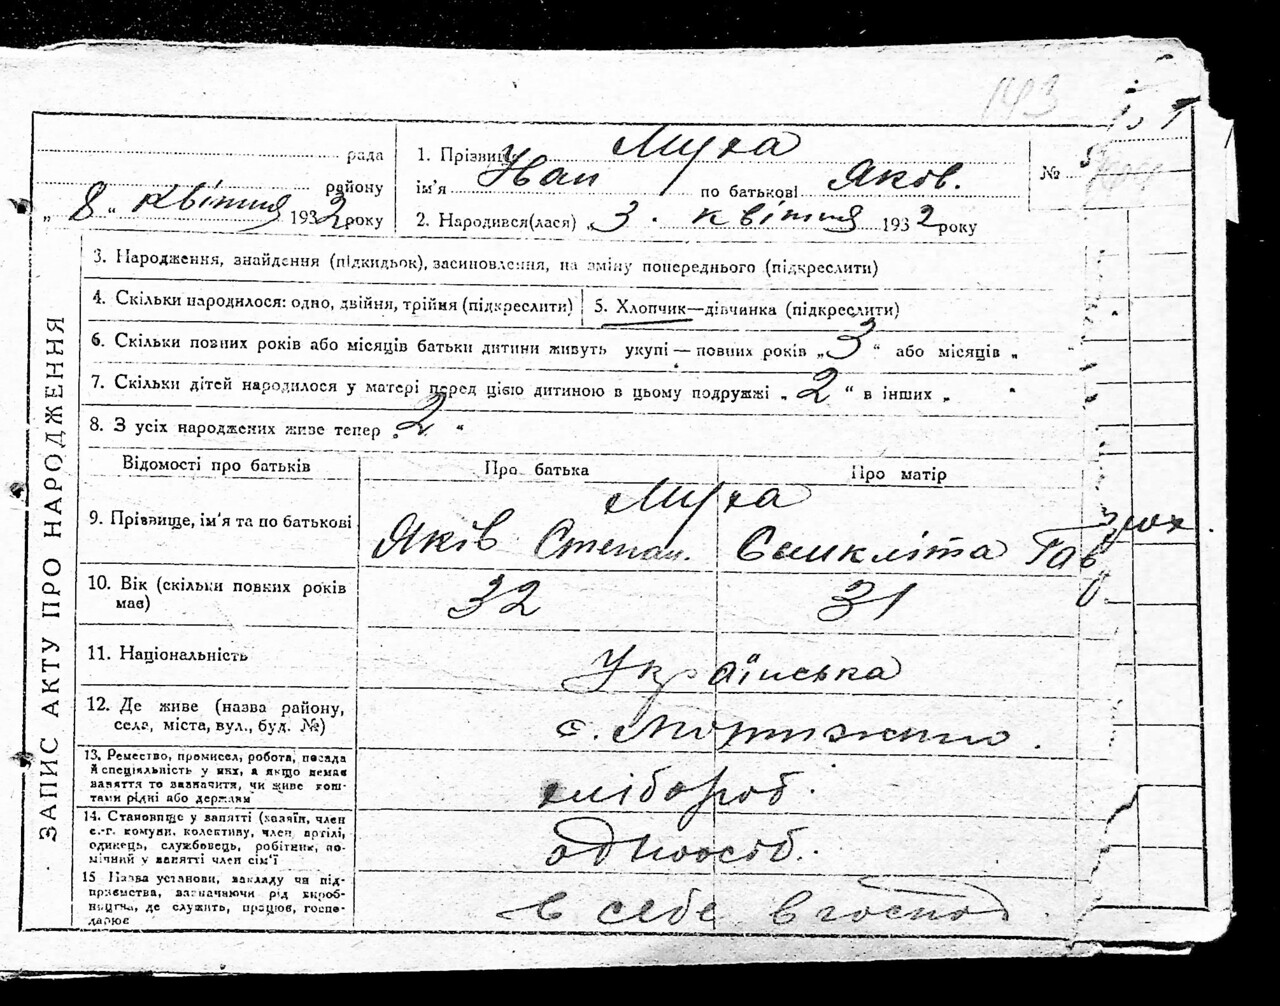 143
ЗАПИС АКТУ ПРО НАРОДЖЕННЯ
рада
району
„ 8 “ квітня 1932 року
1. Прізвище Муха
ім'я Іван по батькові Яков.
2. Народився(лася) „ 3. квітня 1932 року
№
3. Народження, знайдення (підкидьок), засиновлення, на зміну попереднього (підкреслити)
4. Скільки народилося: одно, двійня, трійня (підкреслити)
5. Хлопчик—дівчинка (підкреслити)
6. Скільки повних років або місяців батьки дитини живуть укупі — повних років „ 3 “ або місяців „
7. Скільки дітей народилося у матері перед цією дитиною в цьому подружжі „ 2 “ в інших „
8. З усіх народжених живе тепер „ 2 “
Відомості про батьків Про батька Про матір
9. Прізвище, ім'я та по батькові Муха
Яків Степан. Гав
10. Вік (скільки повних років має) 32 31
11. Національність Українська
12. Де живе (назва району,
села, міста, вул., буд. №) с.
13. Ремество, промисел, робота, посада
й спеціяльність у них, а якщо немає
заняття то зазначити, чи живе кош-
тами рідні або держави
хлібороб.
14. Становище у занятті (хазяїн, член
с.-г. комуни, колективу, член артілі,
одинець, службовець, робітник, по-
мічний у занятті член сім'ї
одноосіб.
15 Назва установи, закладу чи під-
приємства, зазначаючи рід вироб-
ництва, де служить, працює, госпо-
дарює
в себе в господ